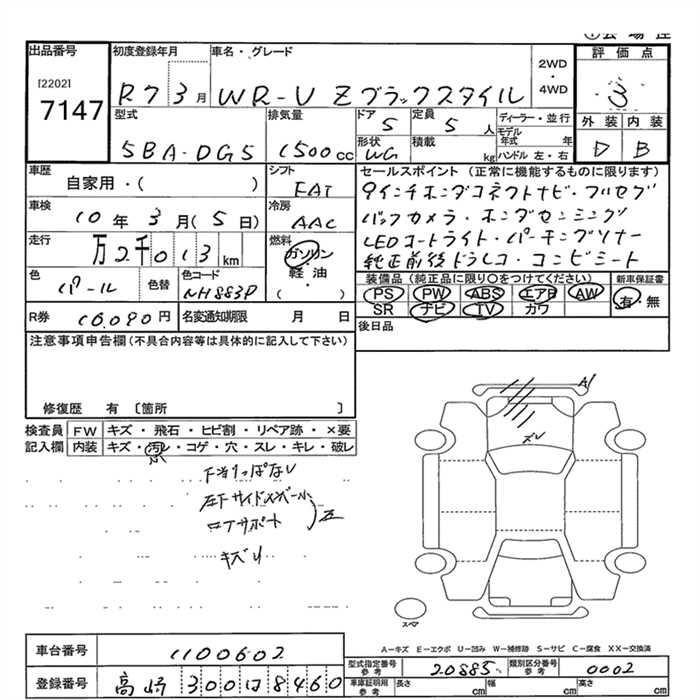 出品番号
[2202]
7147
初度登録年月
R7 3月
車名・グレード
WR-V Z ブラックスタイル
2WD
・
4WD
評価点
3
型式
5BA-DG5
排気量
1500cc
ドア
5
定員
5人
形状
WG
積載
kg
ディーラー・並行
モデル年式 年
ハンドル 左・右
外装 内装
D B
車歴
自家用・( )
シフト
FAT
車検
10年3月(5日)
冷房
AAC
走行
万2千013km
燃料
ガソリン
軽油
・
( )
色
パール
色替
色コード
NH883P
R券
10,090円
名変通知期限 月 日
セールスポイント(正常に機能するものに限ります)
9インチホンダコネクトナビ・フルセグ
バックカメラ・ホンダセンシング
LEDコートライト・パーキングソナー
純正前後ドラレコ・コンビシート
装備品(純正品に限り○をつけてください)
新車保証書
PS PW ABS エアB AW
有・無
SR ナビ TV カワ
後日品
注意事項申告欄(不具合内容等は具体的に記入して下さい)
修復歴 有 〔箇所 〕
検査員
記入欄
FW キズ・飛石・ヒビ割・リペア跡・×要
内装 キズ・汚レ・コゲ・穴・スレ・キレ・破レ
左下サイドメンバー
ロアサポート
キズ
A1
ズレ
スペア
A―キズ E―エクボ U―凹み W―補修跡 S―サビ C―腐食 XX―交換済
車台番号
1100602
登録番号
高崎 300 は 8460
型式指定番号
参考
20885
類別区分番号
参考
0002
車庫証明用
参考
長さ cm
幅 cm
高さ cm